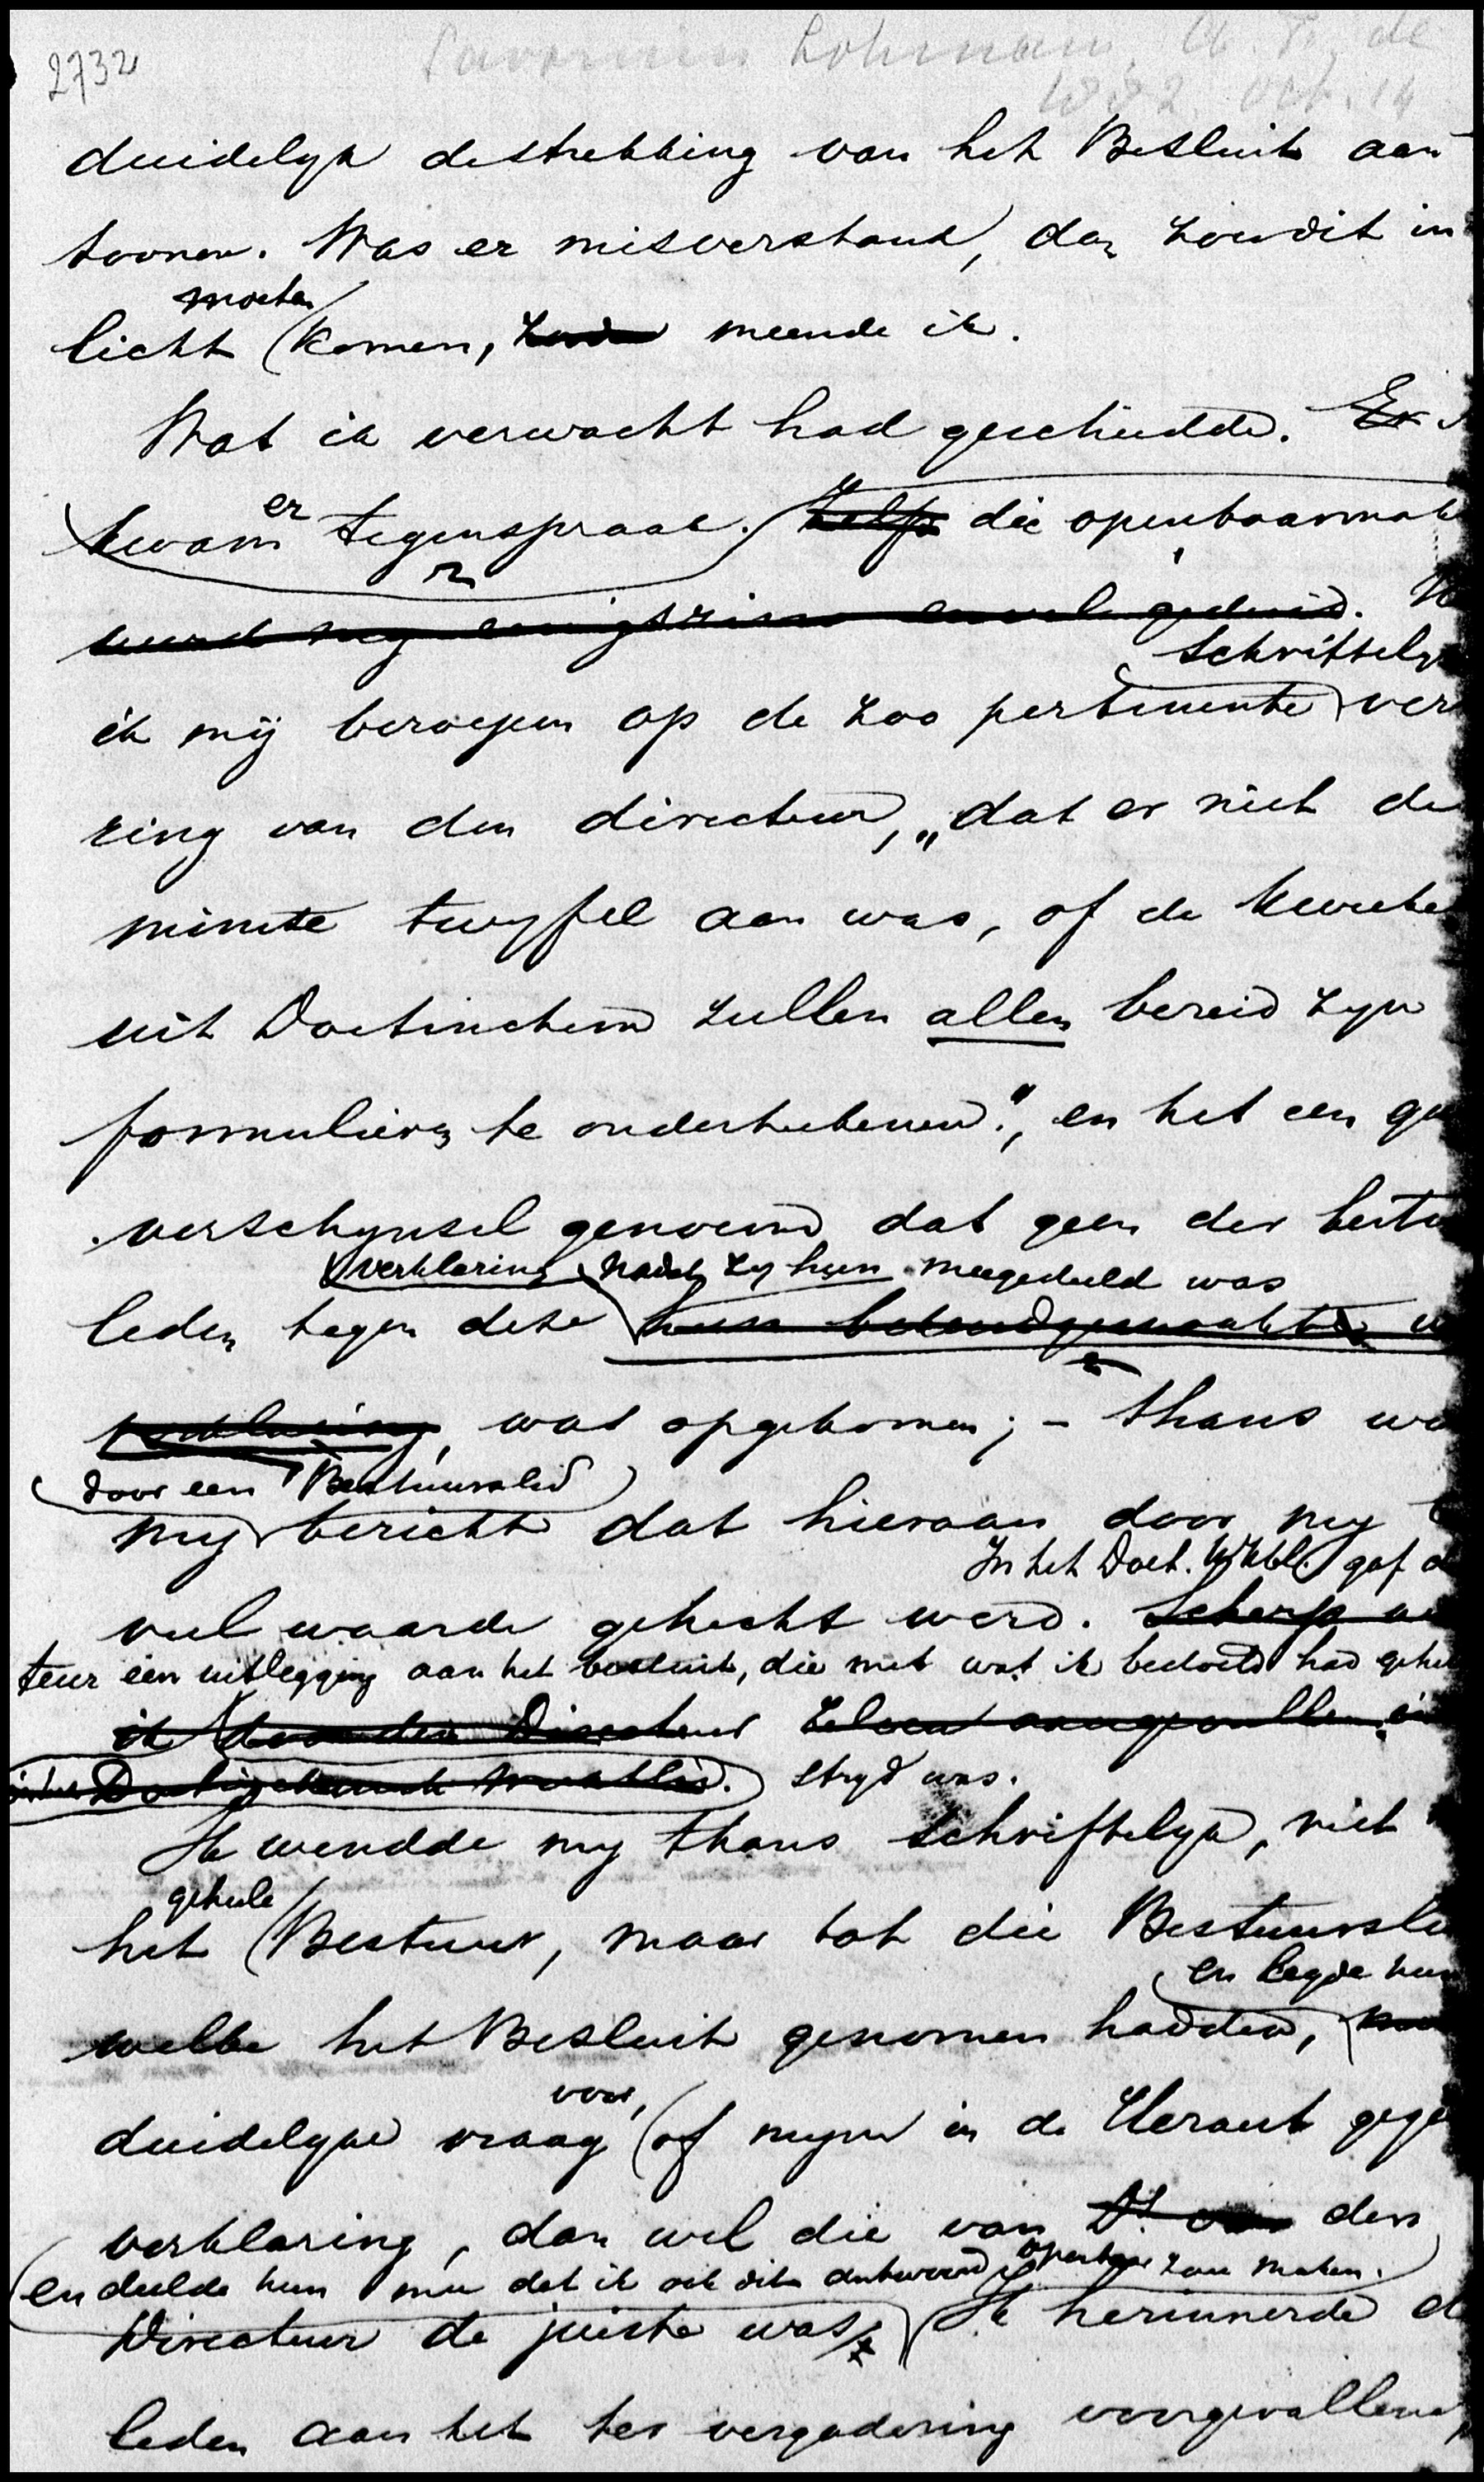 2732
Savornin Lohman, A. F. de
1882. Oct. 14
duidelyk de strekking van het Besluit aan
toonen. Was er misverstand, dan zou dit in
moeten
licht komen, meende ik.
Wat ik verwacht had geschiedde. Er
kwam er tegenspraak. Zelfs die openbaarmak
werd my eenigszins euvel geduid.
schriftely
ik mij beroepen op de zoo pertinente ver
ring van den directeur, „dat er niet de
minste twyfel aan was, of de kweeke
uit Doetinchem zullen allen bereid zyn
formulieren te onderteekenen.", en het een
verschynsel genoemd dat geen der bestu
verklaring nadat zy hun meegedeeld was
leden tegen deze hun bekendgemaakte
verklaring, was opgekomen; - thans we
door een Bestuurslid
my bericht dat hieraan door my
In het Doet. Wkbl. gaf d
veel waarde gehecht werd. Scherp
teur een uitlegging aan het besluit, die met wat ik bedoeld had gehe
ik door den Directeur aangevallen in
Doetinchemsch Weekblad. stryd was.
Ik wendde my thans schriftelyk, niet
geheele
het Bestuur, maar tot die Bestuursle
en legde hun
welke het Besluit genomen hadden,
voor,
duidelyke vraag of myne in de Heraut gege
verklaring, dan wel die van den
en deelde hun mee dat ik ook dit antwoord openbaar zou maken.
Directeur de juiste was. Ik herinnerde d
leden aan het ter vergadering voorgevallene